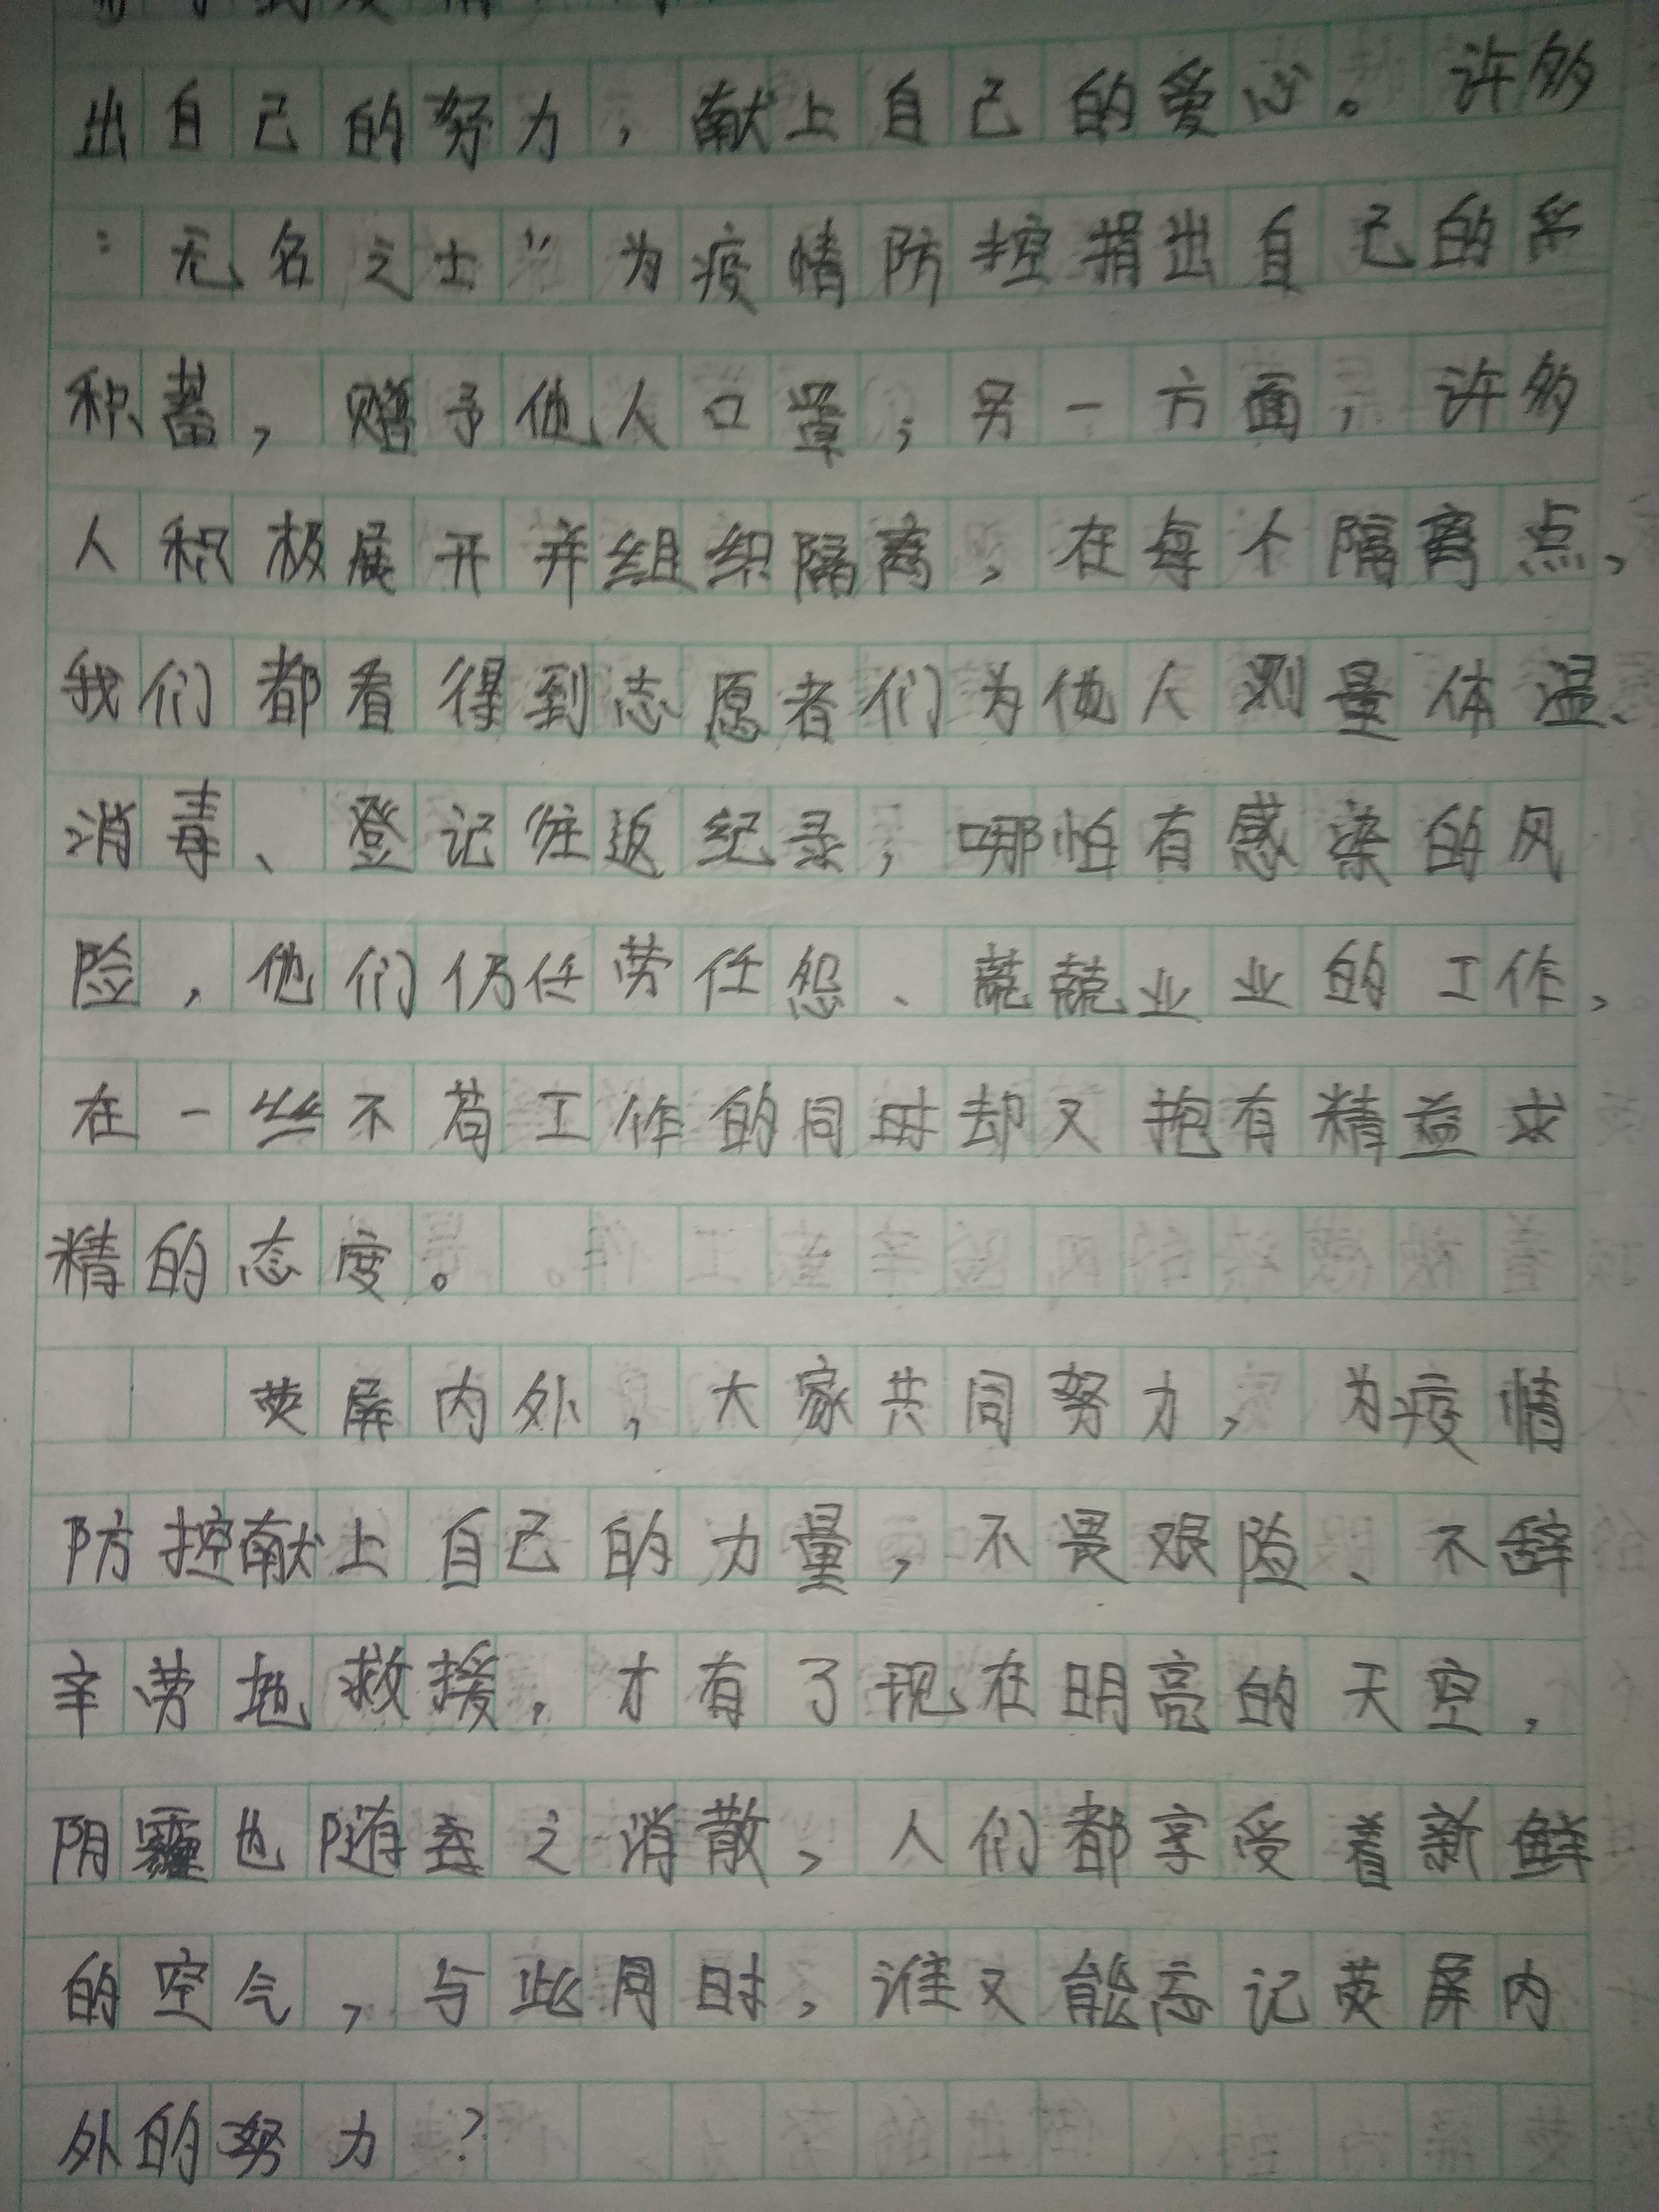 出自己的努力，献上自己的爱心。许多
“无名之士”为疫情防控捐出自己的
积蓄，赠予他人口罩；另一方面，许多
人积极展开并组织隔离，在每个隔离点，
我们都看得到志愿者们为他人测量体温、
消毒、登记往返纪录，哪怕有感染的风
险，他们仍任劳任怨、兢兢业业的工作，
在一丝不苟工作的同时却又抱有精益求
精的态度。
荧屏内外，大家共同努力，为疫情
防控献上自己的力量，不畏艰险、不辞
辛劳地救援，才有了现在明亮的天空，
阴霾也随之消散，人们都享受着新鲜
的空气，与此同时，谁又能忘记荧屏内
外的努力？